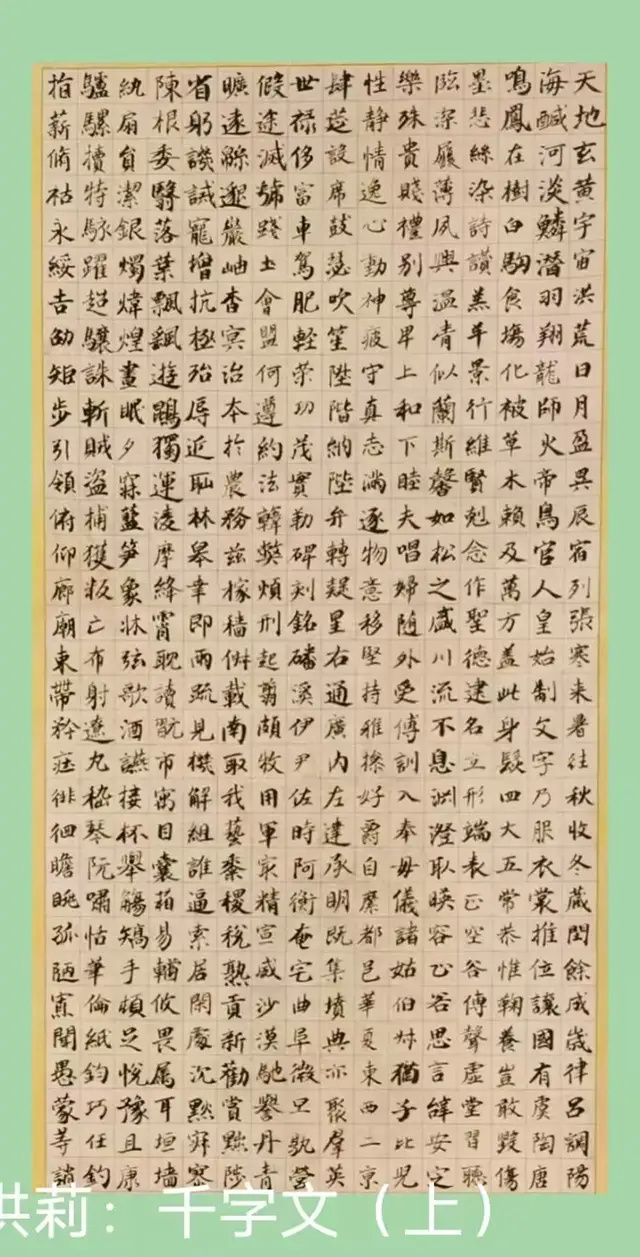 天地玄黃宇宙洪荒日月盈昃辰宿列張寒来暑往秋收冬藏閏餘成歲律吕調陽
海鹹河淡鱗潛羽翔龍師火帝鳥官人皇始制文字乃服衣裳推位讓國有虞陶唐
鳴鳳在樹白駒食場化被草木賴及萬方盖此身髮四大五常恭惟鞠養豈敢毀傷
墨悲絲染詩讃羔羊景行維賢剋念作聖德建名立形端表正空谷傳聲虚堂習聽
臨深履薄夙興温凊似蘭斯馨如松之盛川流不息渊澄取暎容止若思言辭安定
樂殊貴賤禮别尊卑上和下睦夫唱婦随外受傅訓入奉母儀諸姑伯叔猶子比兒
性静情逸心動神疲守真志满逐物意移堅持雅操好爵自縻都邑華夏東西二京
肆筵設席鼓瑟吹笙陞階納陛弁轉疑星右通廣内左達承明既集墳典亦聚羣英
世禄侈富車駕肥軽策功茂實勒碑刻銘磻溪伊尹佐時阿衡奄宅曲阜微旦孰營
假途滅虢踐土會盟何遵約法韓弊煩刑起翦頗牧用軍最精宣威沙漠馳譽丹青
曠遠緜邈巖岫杳冥治本於農務兹稼穡俶載南畝我藝黍稷稅熟貢新勸賞黜陟
省躬譏誡寵增抗極殆辱近恥林皋幸即兩疏見機解組誰逼索居閑處沉默寂寥
陳根委翳落葉飄颻遊鵾獨運凌摩絳霄耽讀翫市寓目囊箱易輶攸畏属耳垣墙
紈扇員潔銀燭煒煌晝眠夕寐藍笋象牀弦歌酒讌接杯舉觴矯手頓足悅豫且康
驢騾犢特駭躍超驤誅斬賊盗捕獲叛亡布射遼丸嵇琴阮嘯恬筆倫紙鈞巧任釣
指薪脩祜永綏吉劭矩步引領俯仰廊廟束帶矜莊徘徊瞻眺孤陋寡聞愚蒙等誚
洪莉：千字文（上）